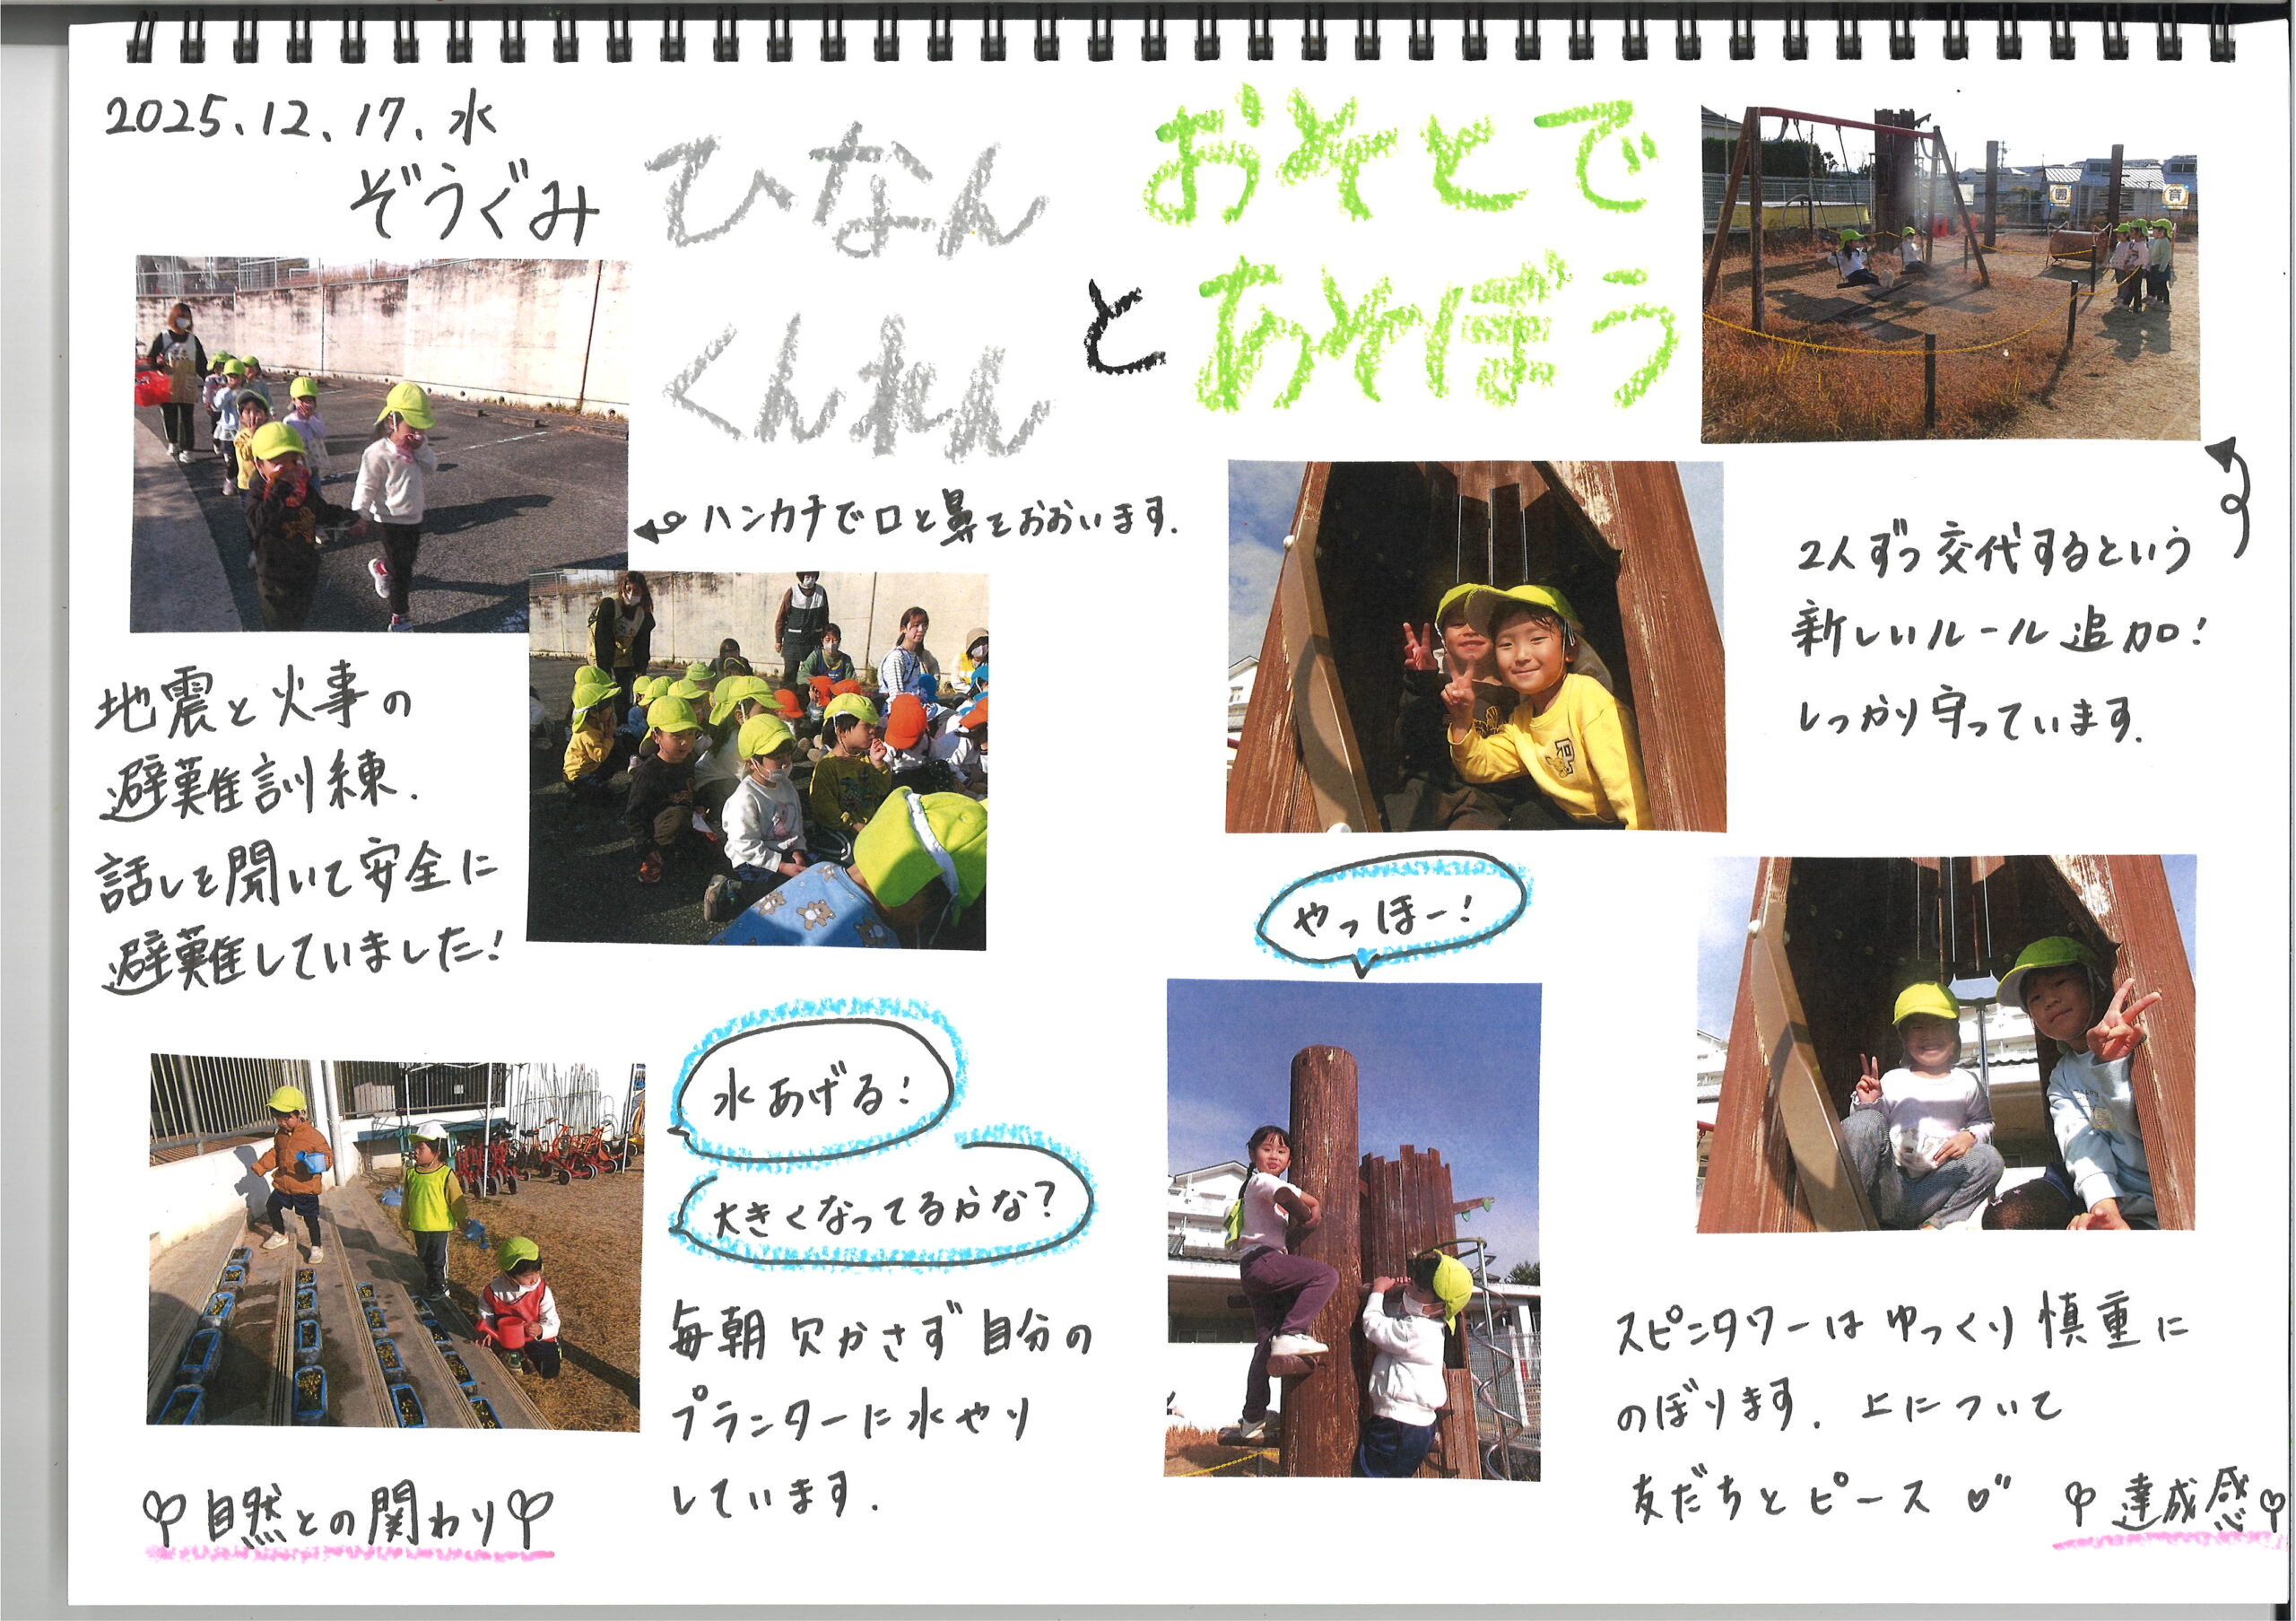 2025.12.17.水
ぞうぐみ
ひなん
くんれん
と
おそとで
あそぼう
ハンカチで口と鼻をおおいます.
地震と火事の
避難訓練.
話しを聞いて安全に
避難していました!
水あげる!
大きくなってるかな?
毎朝欠かさず自分の
プランターに水やり
しています.
自然との関わり
2人ずつ交代するという
新しいルール追加!
しっかり守っています.
やっほー!
スピンタワーはゆっくり慎重に
のぼります. 上について
友だちとピース♡
達成感
園
育